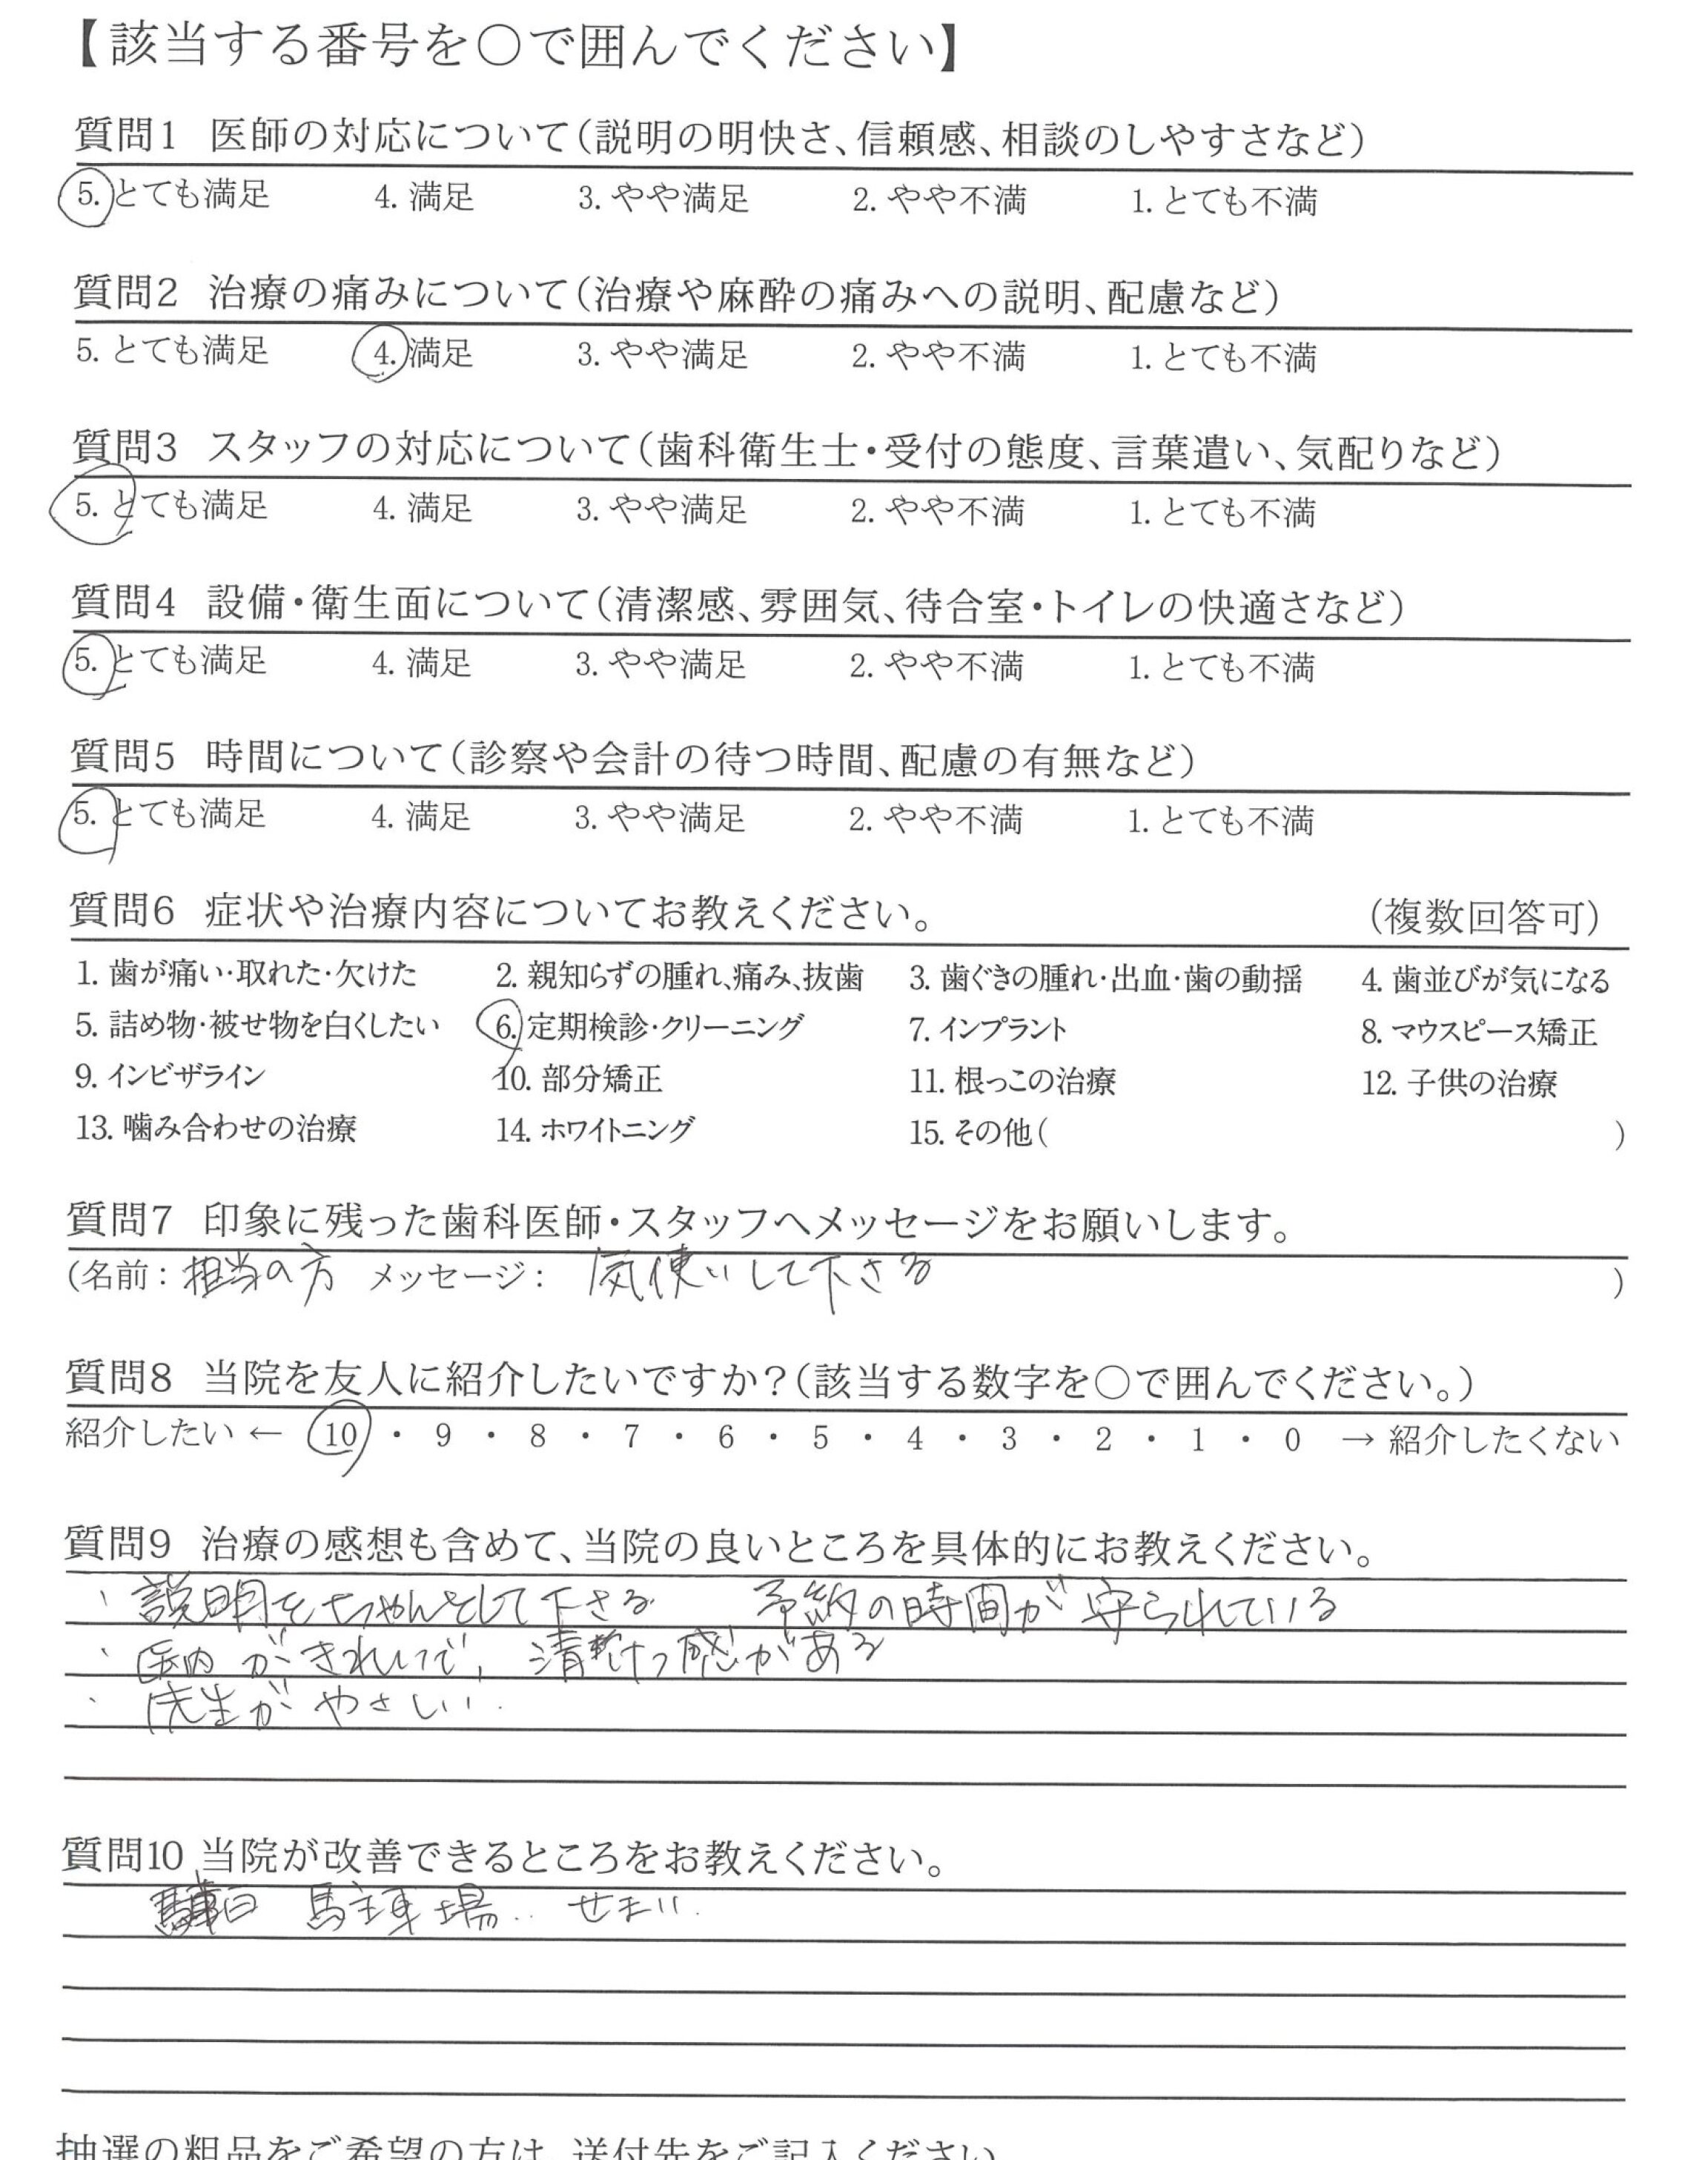 【該当する番号を○で囲んでください】
質問1 医師の対応について(説明の明快さ、信頼感、相談のしやすさなど)
5. とても満足 4. 満足 3. やや満足 2. やや不満 1. とても不満
質問2 治療の痛みについて(治療や麻酔の痛みへの説明、配慮など)
5. とても満足 4. 満足 3. やや満足 2. やや不満 1. とても不満
質問3 スタッフの対応について(歯科衛生士・受付の態度、言葉遣い、気配りなど)
5. とても満足 4. 満足 3. やや満足 2. やや不満 1. とても不満
質問4 設備・衛生面について(清潔感、雰囲気、待合室・トイレの快適さなど)
5. とても満足 4. 満足 3. やや満足 2. やや不満 1. とても不満
質問5 時間について(診察や会計の待つ時間、配慮の有無など)
5. とても満足 4. 満足 3. やや満足 2. やや不満 1. とても不満
質問6 症状や治療内容についてお教えください。 (複数回答可)
1. 歯が痛い・取れた・欠けた 2. 親知らずの腫れ、痛み、抜歯 3. 歯ぐきの腫れ・出血・歯の動揺 4. 歯並びが気になる
5. 詰め物・被せ物を白くしたい 6. 定期検診・クリーニング 7. インプラント 8. マウスピース矯正
9. インビザライン 10. 部分矯正 11. 根っこの治療 12. 子供の治療
13. 噛み合わせの治療 14. ホワイトニング 15. その他( )
質問7 印象に残った歯科医師・スタッフへメッセージをお願いします。
(名前：担当の方 メッセージ： 気使いして下さる )
質問8 当院を友人に紹介したいですか？(該当する数字を○で囲んでください。)
紹介したい ← 10 ・ 9 ・ 8 ・ 7 ・ 6 ・ 5 ・ 4 ・ 3 ・ 2 ・ 1 ・ 0 → 紹介したくない
質問9 治療の感想も含めて、当院の良いところを具体的にお教えください。
・説明をちゃんとして下さる 予約の時間が守られている
・医内がきれいで、清けつ感がある
・先生がやさしい.
質問10 当院が改善できるところをお教えください。
駐車場.. せまい.
抽選の粗品をご希望の方は、送付先をご記入ください